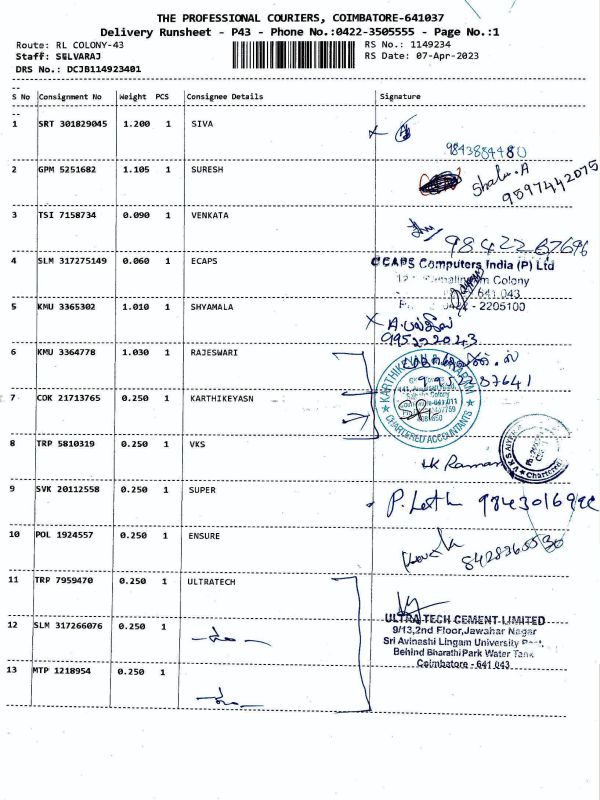 THE PROFESSIONAL COURIERS, COIMBATORE-641037
Delivery Runsheet - P43 - Phone No.:0422-3505555 - Page No.:1
Route: RL COLONY-43
RS No.: 1149234
Staff: SELVARAJ
RS Date: 07-Apr-2023
DRS No.: DCJB114923401
S No Consignment No Weight PCS Consignee Details Signature
1 SRT 301829045 1.200 1 SIVA
2 GPM 5251682 1.105 1 SURESH
Shalu.A
9597442075
3 TSI 7158734 0.090 1 VENKATA
4 SLM 317275149 0.060 1 ECAPS
CCAPS Computers India (P) Ltd
Colony
641 043
2205100
5 KMU 3365302 1.010 1 SHYAMALA
6 KMU 3364778 1.030 1 RAJESWARI
9952237641
7 COK 21713765 0.250 1 KARTHIKEYASN
CHARTERED ACCOUNTANTS
8 TRP 5810319 0.250 1 VKS
Raman
9 SVK 20112558 0.250 1 SUPER
10 POL 1924557 0.250 1 ENSURE
11 TRP 7959470 0.250 1 ULTRATECH
ULTRA TECH CEMENT LIMITED
9/13,2nd Floor,Jawahar Nagar
Sri Avinashi Lingam University
Behind Bharathi Park Water Tank
Coimbatore - 641 043
12 SLM 317266076 0.250 1
13 MTP 1218954 0.250 1